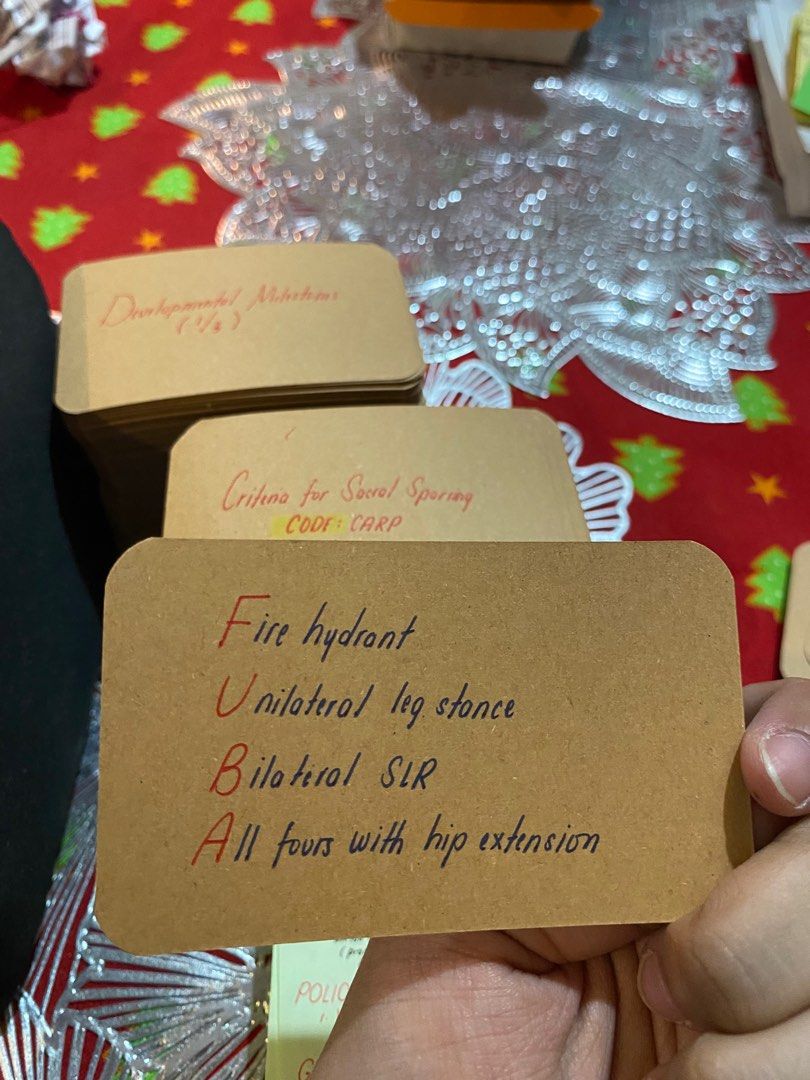 Developmental Milestones
(1/2)
Criteria for Sacral Sparing
CODE: CARP
Fire hydrant
Unilateral leg stance
Bilateral SLR
All fours with hip extension
POLIC
1.
G